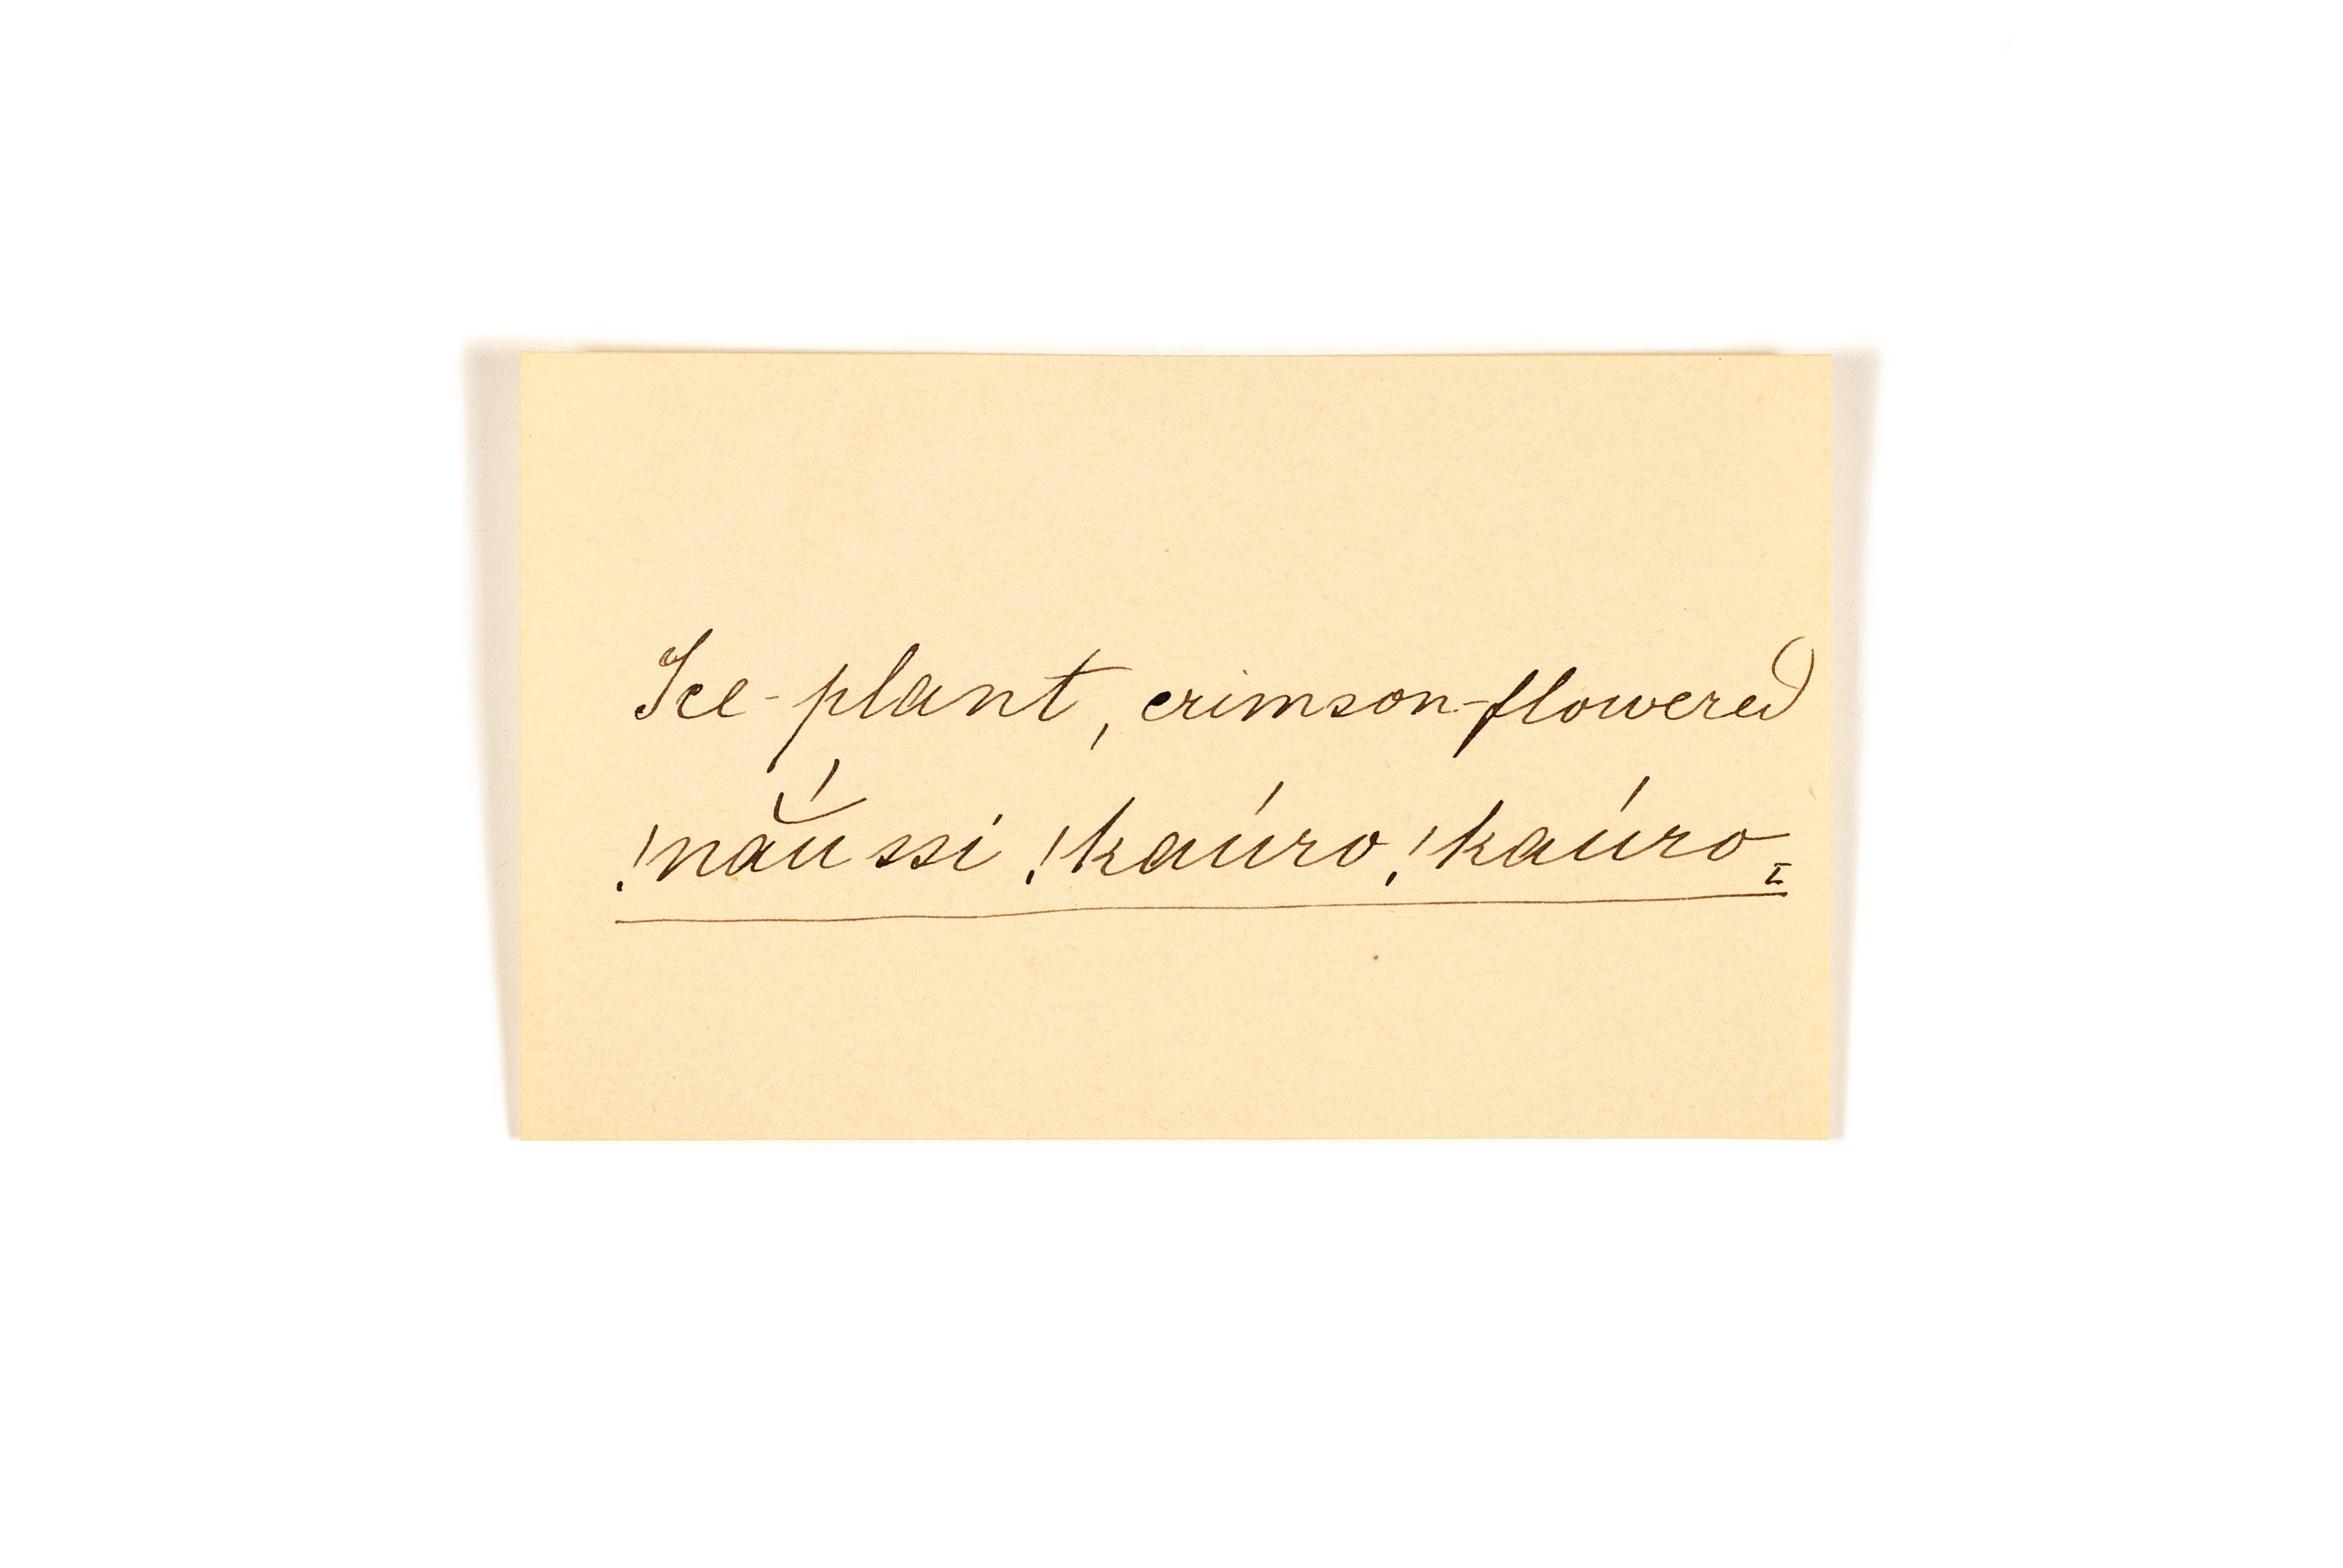 Ice-plant, crimson-flowered
!nắu ssi !kaúro !kaúro I